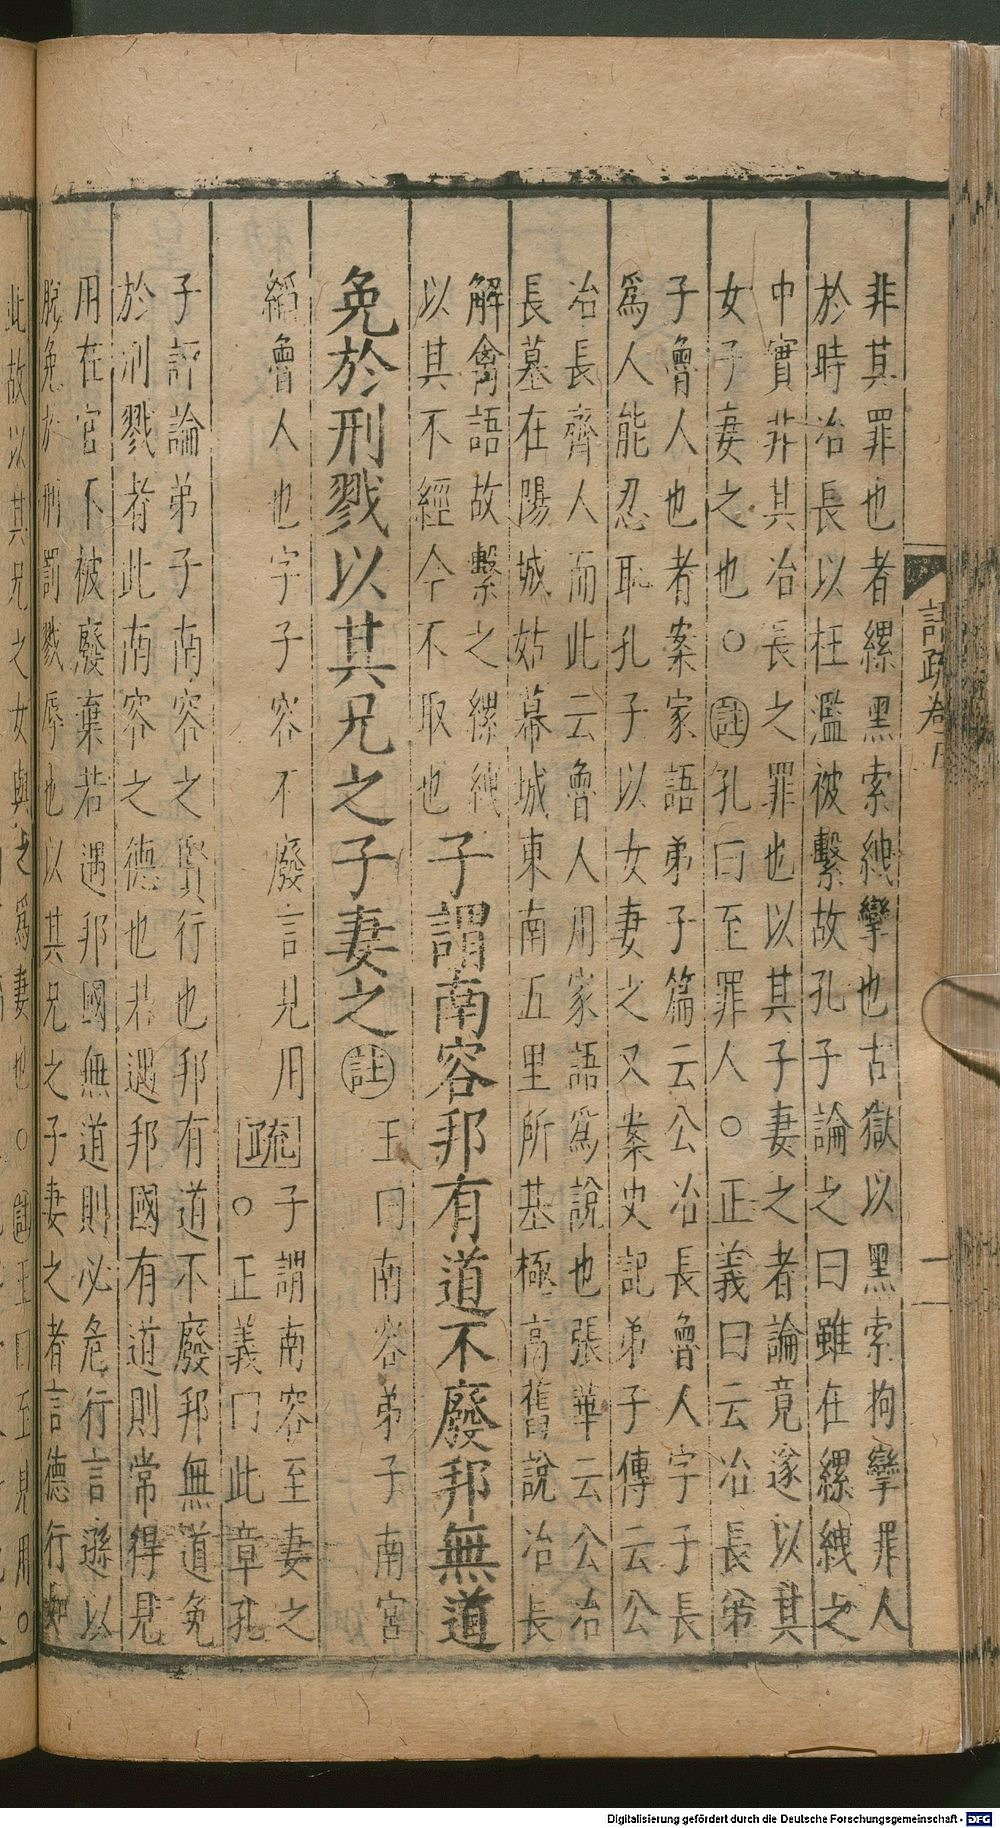 非其罪也者縲黑索紲攣也古獄以黑索拘攣罪人
於時冶長以枉濫被繫故孔子論之曰雖在縲紲之
中實非其冶長之罪也以其子妻之者論竟遂以其
女子妻之也○註孔曰至罪人○正義曰云冶長弟
子魯人也者案家語弟子篇云公冶長魯人字子長
爲人能忍恥孔子以女妻之又案史記弟子傳云公
冶長齊人而此云魯人用家語爲說也張華云公冶
長墓在陽城姑幕城東南五里所基極高舊說冶長
解禽語故繫之縲紲
以其不經今不取也
子謂南容邦有道不廢邦無道
免於刑戮以其兄之子妻之註
王曰南容弟子南宮
縚魯人也字子容不廢言見用
疏
子謂南容至妻之
○正義曰此章孔
子評論弟子南容之賢行也邦有道不廢邦無道免
於刑戮者此南容之德也若遇邦國有道則常得見
用在官不被廢棄若遇邦國無道則必危行言遜以
脫免於刑罰戮辱也以其兄之子妻之者言德行如
此故以其兄之女與之爲妻也○註王曰至見用○
語疏卷
Digitalisierung gefördert durch die Deutsche Forschungsgemeinschaft - DFG